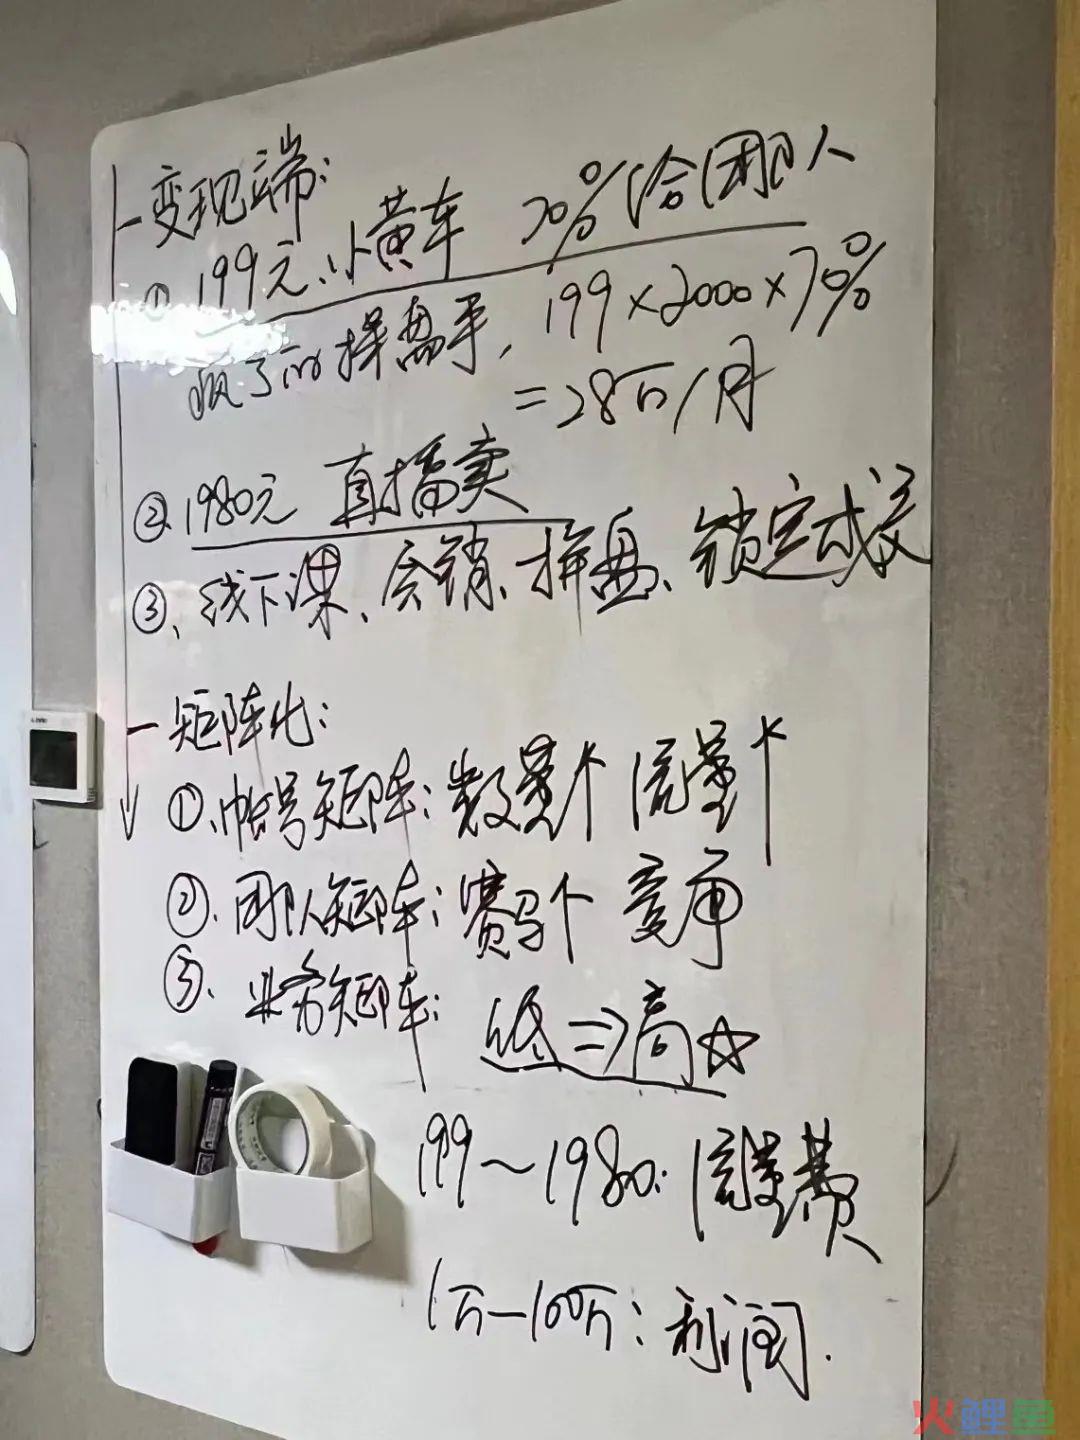 一变现端:
① 199元、小黄车 70%给团队
疯了的操盘手, 199×2000×70%
=28万/月
②、1980元 直播卖
③、线下课、会销、操盘、锁定成交
一矩阵化:
①、帐号矩阵: 数量↑ 流量↑
②、团队矩阵: 赛马↑ 竞争
③、业务矩阵: 低⇒高☆
199~1980: 流量费
1万—100万: 利润.
火鲤鱼